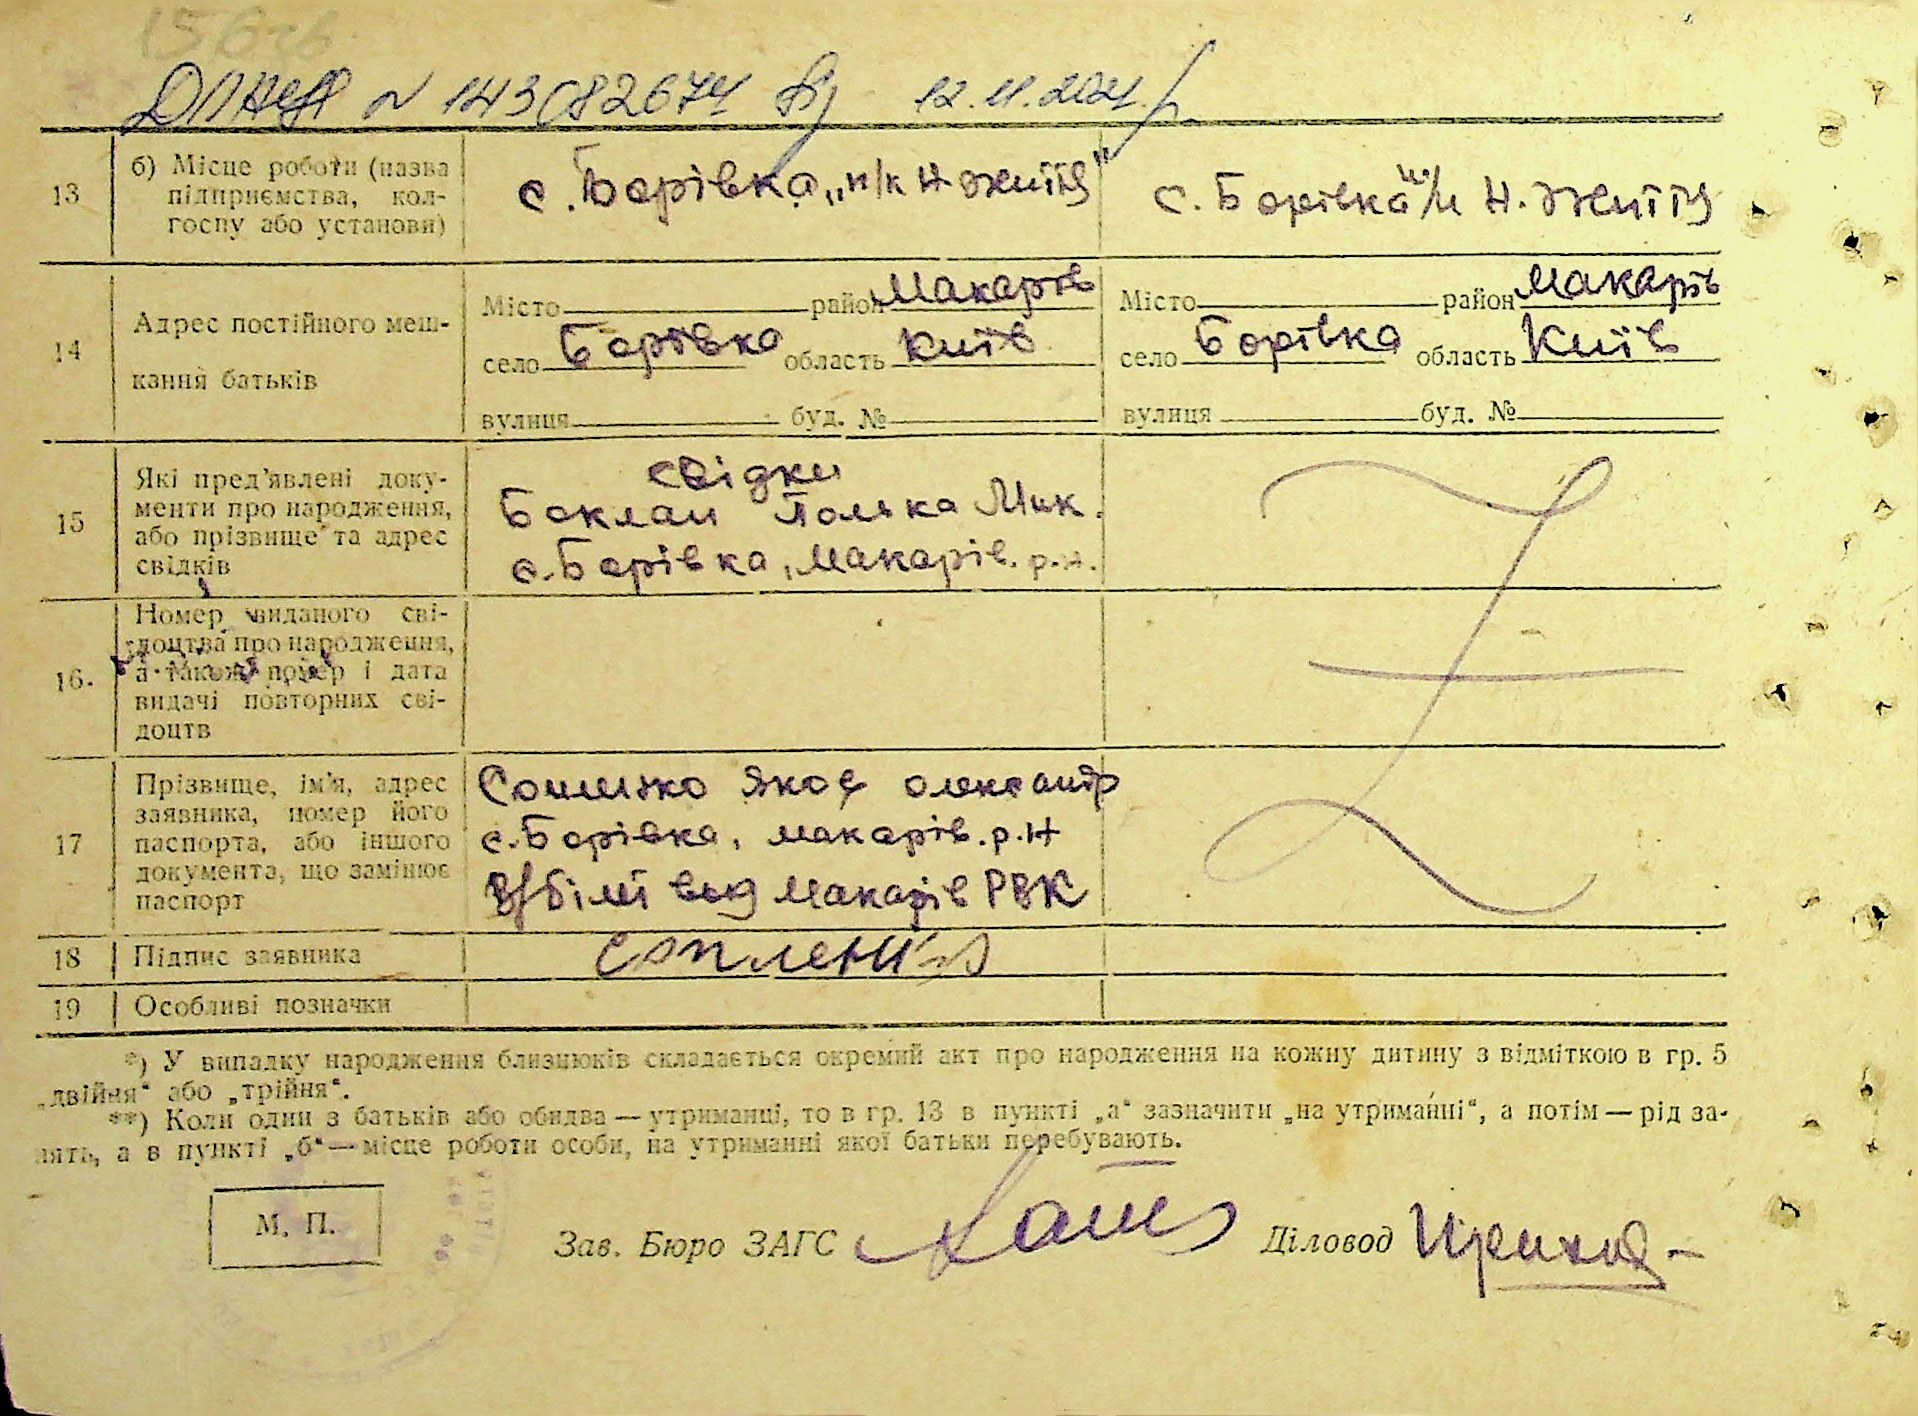 N 143082674 12.11.2021.
13
б) Місце роботи (назва підприємства, колгоспу або установи)
с. Борівка „к/к Н-життя"
с. Борівка Н. Життя
14
Адрес постійного мешкання батьків
Місто район Макарів
село Борівка область Київ
вулиця буд. №
Місто район Макарів
село Борівка область Київ
вулиця буд. №
15
Які пред'явлені документи про народження, або прізвище та адрес свідків
свідки
Баклан Полька Мик.
с. Борівка, Макарів. р.н.
16.
Номер виданого свідоцтва про народження, а також номер і дата видачі повторних свідоцтв
17
Прізвище, ім'я, адрес заявника, номер його паспорта, або іншого документа, що замінює паспорт
Яков олександр
с. Борівка, Макарів. р.н
в/біл вид Макарів РВК
18
Підпис заявника
19
Особливі позначки
*) У випадку народження близнюків складається окремий акт про народження на кожну дитину з відміткою в гр. 5
„двійня“ або „трійня“.
**) Коли один з батьків або обидва — утриманці, то в гр. 13 в пункті „а“ зазначити „на утриманні“, а потім — рід за-
нять, а в пункті „б“ — місце роботи особи, на утриманні якої батьки перебувають.
М. П.
Зав. Бюро ЗАГС
Діловод